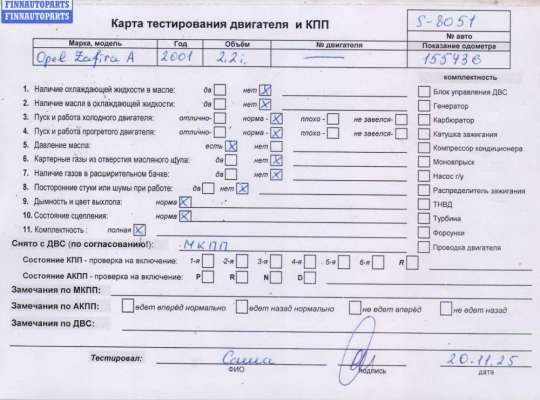 FINNAUTOPARTS
FINNAUTOPARTS
FINNAUTOPARTS
Карта тестирования двигателя и КПП
S-8051
№ авто
Марка, модель Год Объём № двигателя Показание одометра
Opel Zafira A 2001 2.2i — 155436
комплектность
1. Наличие охлаждающей жидкости в масле: да нет X
Блок управления ДВС
2. Наличие масла в охлаждающей жидкости: да нет X
Генератор
3. Пуск и работа холодного двигателя: отлично- норма - X плохо - не завелся-
Карбюратор
4. Пуск и работа прогретого двигателя: отлично- норма - X плохо - не завелся-
Катушка зажигания
5. Давление масла: есть X нет
Компрессор кондиционера
6. Картерные газы из отверстия масляного щупа: да нет X
Моновпрыск
7. Наличие газов в расширительном бачке: да нет X
Насос г/у
8. Посторонние стуки или шумы при работе: да нет X
Распределитель зажигания
9. Дымность и цвет выхлопа: норма X
ТНВД
10. Состояние сцепления: норма X
Турбина
11. Комплектность : полная X
Форсунки
Снято с ДВС (по согласованию!): МКПП
Проводка двигателя
Состояние КПП - проверка на включение: 1-я 2-я 3-я 4-я 5-я 6-я R
Состояние АКПП - проверка на включение: P R N D
Замечания по МКПП:
Замечания по АКПП: едет вперёд нормально едет назад нормально не едет вперёд не едет назад
Замечания по ДВС:
Тестировал: Саша 20.11.25
ФИО подпись дата